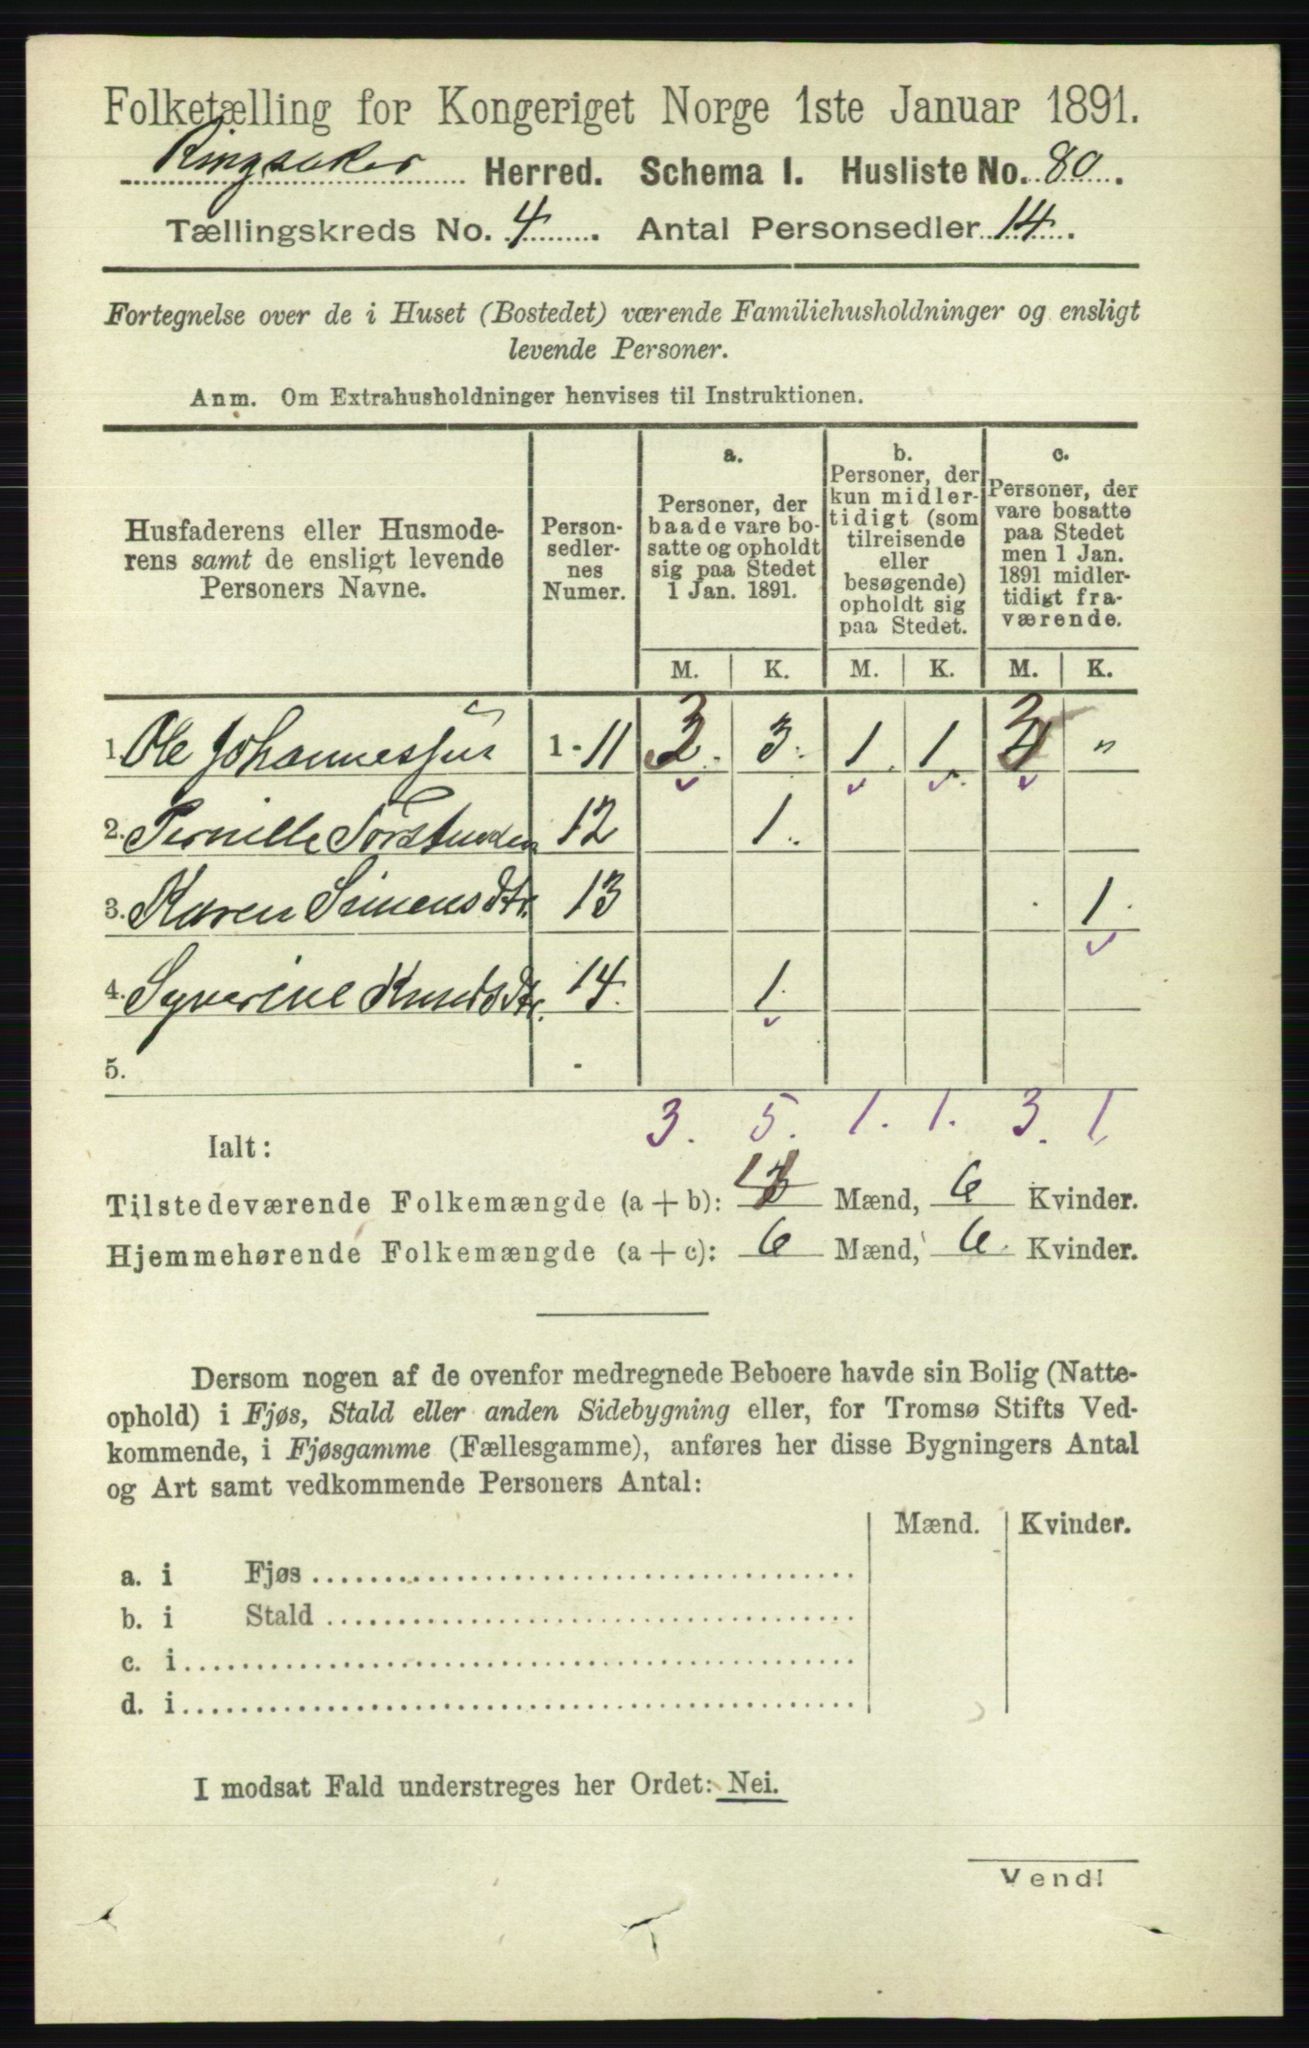 Folketælling for Kongeriget Norge 1ste Januar 1891.
Ringsaker Herred. Schema I. Husliste No. 80.
Tællingskreds No. 4. Antal Personsedler 14.
Fortegnelse over de i Huset (Bostedet) værende Familiehusholdninger og ensligt
levende Personer.
Anm. Om Extrahusholdninger henvises til Instruktionen.
Husfaderens eller Husmode-
rens samt de ensligt levende
Personers Navne.
Person-
sedler-
nes
Numer.
a.
Personer, der
baade vare bo-
satte og opholdt
sig paa Stedet
1 Jan. 1891.
b.
Personer, der
kun midler-
tidigt (som
tilreisende
eller
besøgende)
opholdt sig
paa Stedet.
c.
Personer, der
vare bosatte
paa Stedet
men 1 Jan.
1891 midler-
tidigt fra-
værende.
M. K. M. K. M. K.
1. Ole Johannessen 1-11 3 3. 1. 1. 3 "
2. Pernille 12 1.
3. Karen Simensdtr. 13 1.
4. Syverine Knudsdtr. 14. 1.
5. -
3. 5. 1. 1. 3. 1.
Ialt:
Tilstedeværende Folkemængde (a + b): 4 Mænd, 6 Kvinder.
Hjemmehørende Folkemængde (a + c): 6 Mænd, 6. Kvinder.
Dersom nogen af de ovenfor medregnede Beboere havde sin Bolig (Natte-
ophold) i Fjøs, Stald eller anden Sidebygning eller, for Tromsø Stifts Ved-
kommende, i Fjøsgamme (Fællesgamme), anføres her disse Bygningers Antal
og Art samt vedkommende Personers Antal:
Mænd. Kvinder.
a. i Fjøs
b. i Stald
c. i
d. i
I modsat Fald understreges her Ordet: Nei.
Vend!